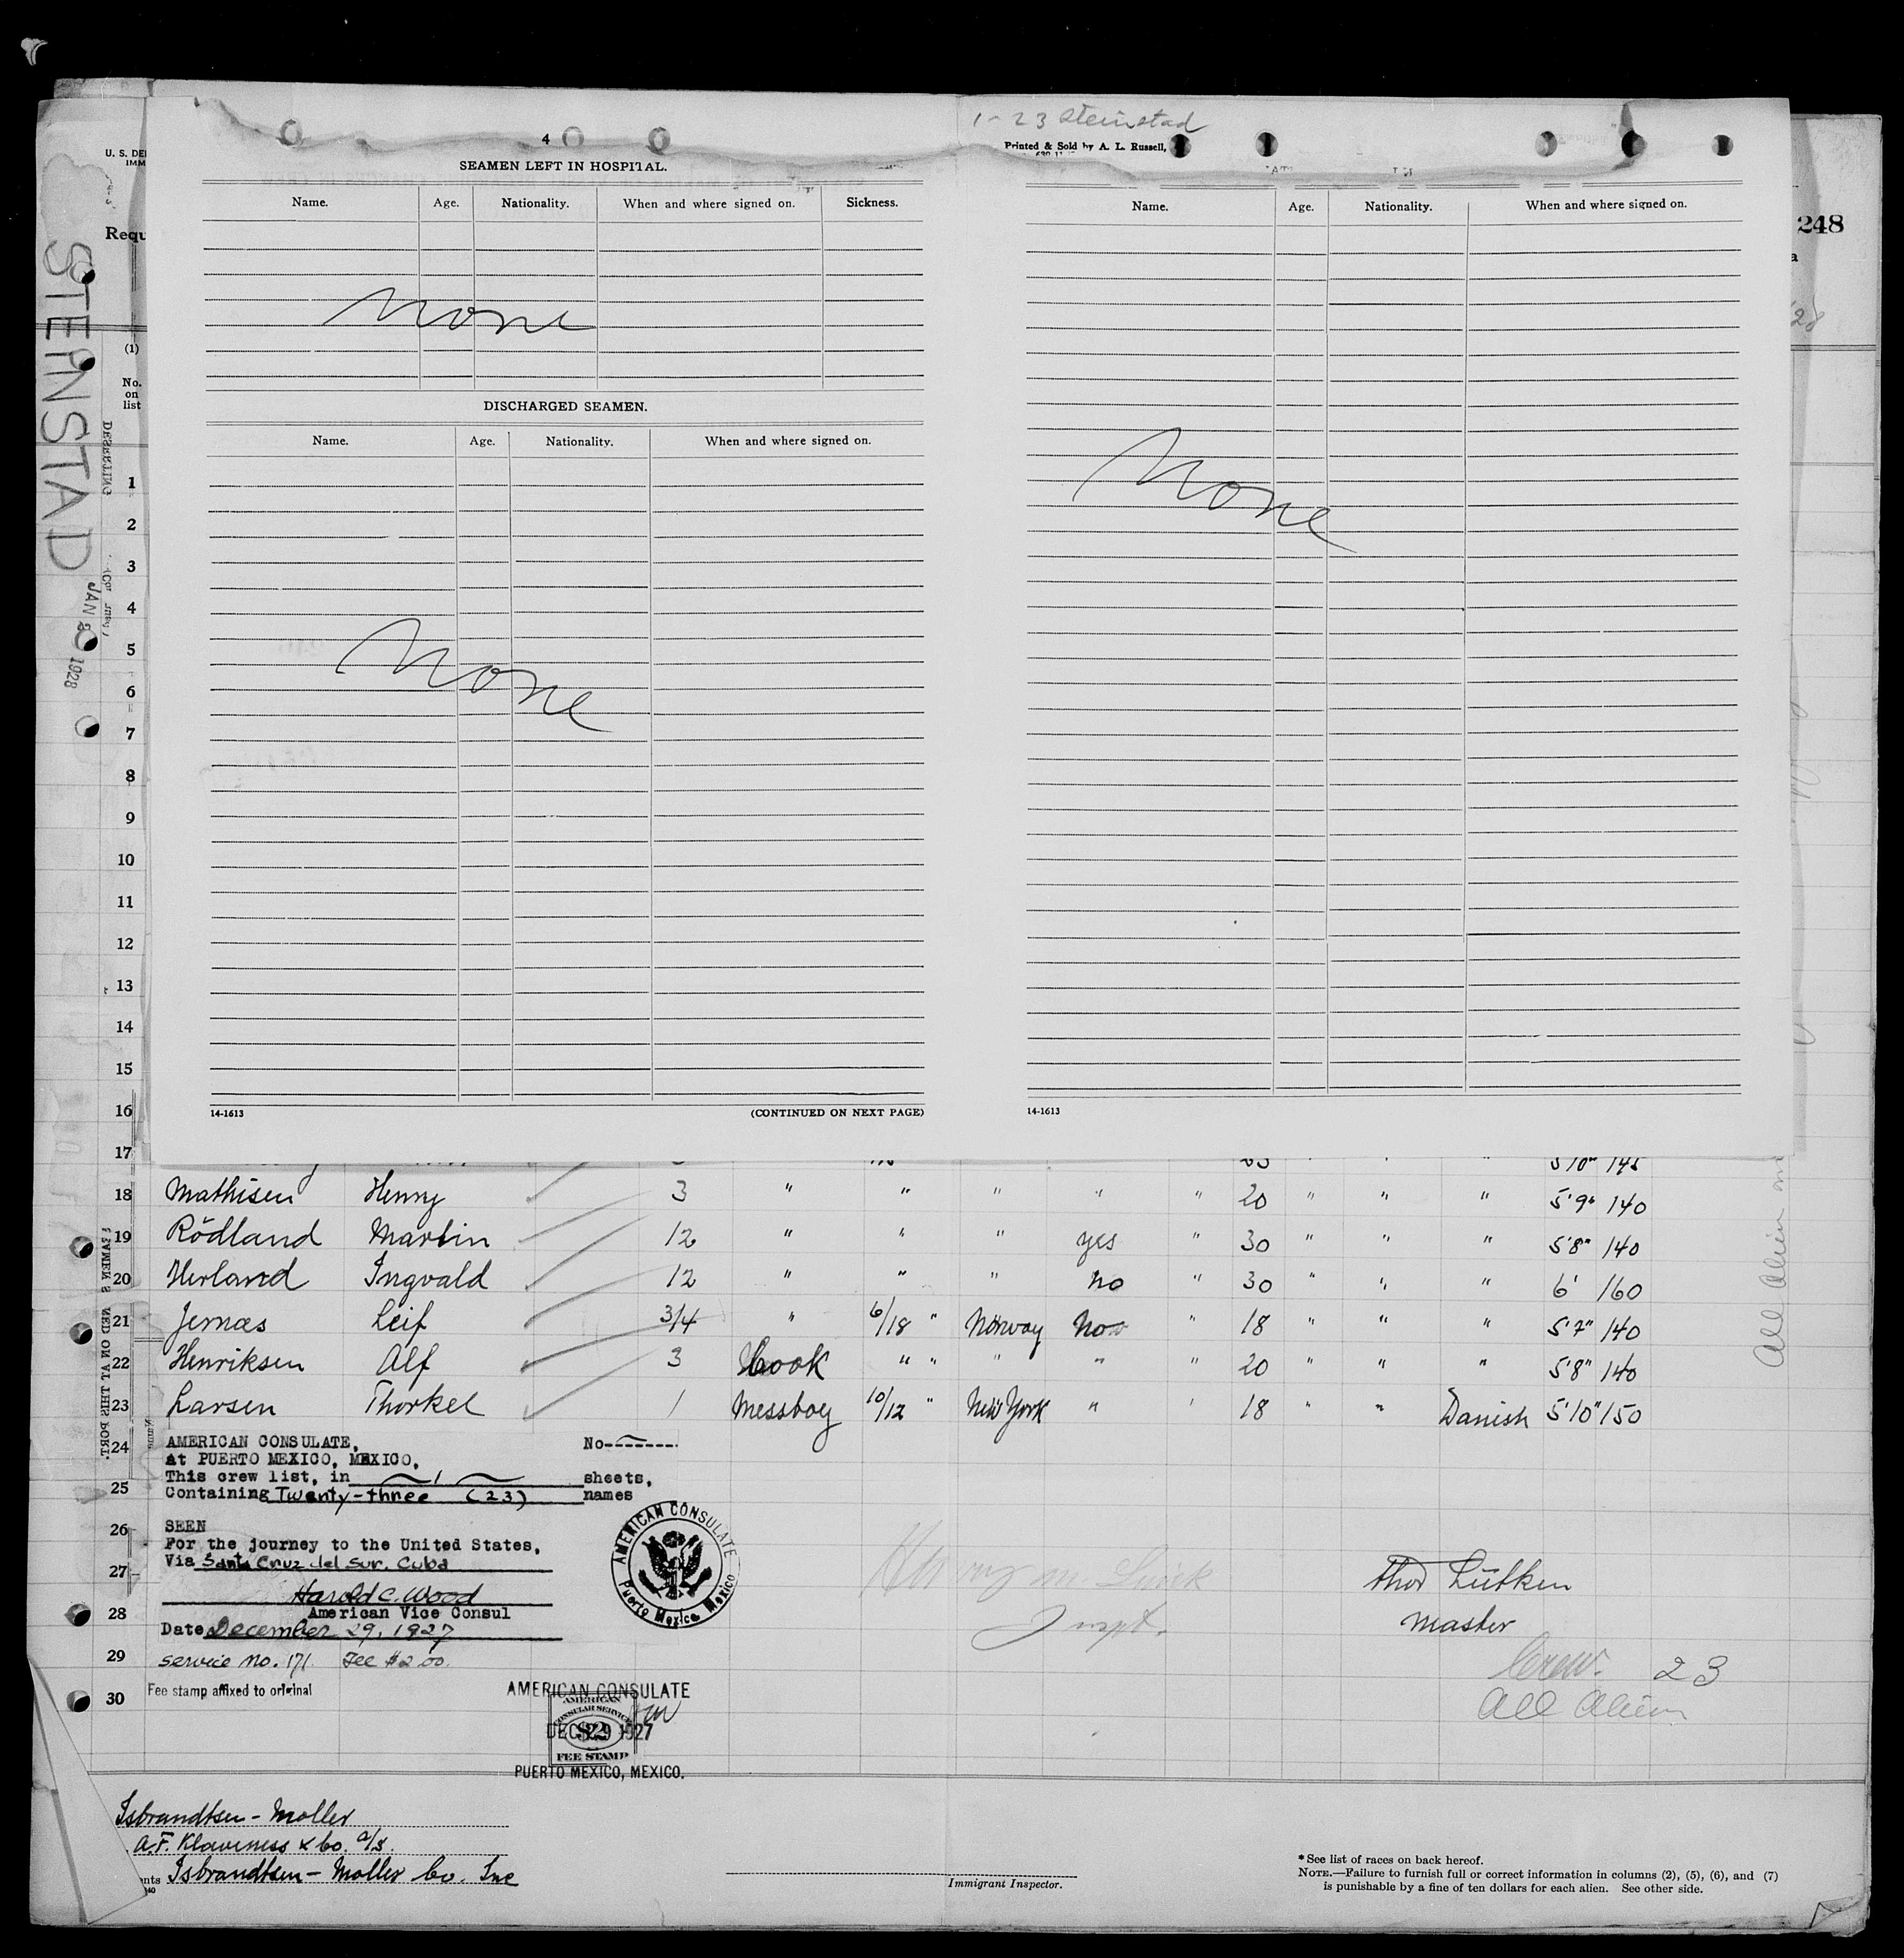 1-23 Steinstad
4
Printed & Sold by A. L. Russell,
U. S. DE
IMM
SEAMEN LEFT IN HOSPITAL.
Name. Age. Nationality. When and where signed on. Sickness.
None
DISCHARGED SEAMEN.
Name. Age. Nationality. When and where signed on.
None
14-1613 (CONTINUED ON NEXT PAGE)
Name. Age. Nationality. When and where signed on.
None
14-1613
248
Requ
STEINSTAD
JAN 1928
DESERTING
(1)
No.
on
list
1
2
3
4
5
6
7
8
9
10
11
12
13
14
15
16
17 5'10" 145
18 Mathisen Henny 3 " " " " " 20 " " " 5'9" 140
19 Rödland Martin 12 " " " yes " 30 " " " 5'8" 140
20 Herland Ingvald 12 " " " no " 30 " " " 6' 160
21 Jernæs Leif 3/4 " 6/18 " Norway No " 18 " " " 5'7" 140
22 Henriksen Alf 3 Cook " " " " " 20 " " " 5'8" 140
23 Larsen Thorkel 1 Messboy 10/12 " New York " " 18 " " Danish 5'10" 150
24
25
26
27
28
29
30
AMERICAN CONSULATE, No
At PUERTO MEXICO, MEXICO.
This crew list, in 1 sheets,
Containing Twenty-three (23) names
SEEN
For the journey to the United States,
Via Santa Cruz del Sur. Cuba
Harold C. Wood
American Vice Consul
Date December 29, 1927
Service No. 171. Fee $2.00.
Fee stamp affixed to original
AMERICAN CONSULATE
Puerto Mexico, Mexico
AMERICAN CONSULATE
AMERICAN
CONSULAR SERVICE
$2
DEC 29 1927
FEE STAMP
PUERTO MEXICO, MEXICO.
Inspt.
Thor Lütken
Master
Crew. 23
All Alien
All Alien
Isbrandtsen - Moller
A.F. Klaveness & Co. A/S.
Isbrandtsen - Moller Co. Inc
Immigrant Inspector.
* See list of races on back hereof.
NOTE.—Failure to furnish full or correct information in columns (2), (5), (6), and (7)
is punishable by a fine of ten dollars for each alien. See other side.